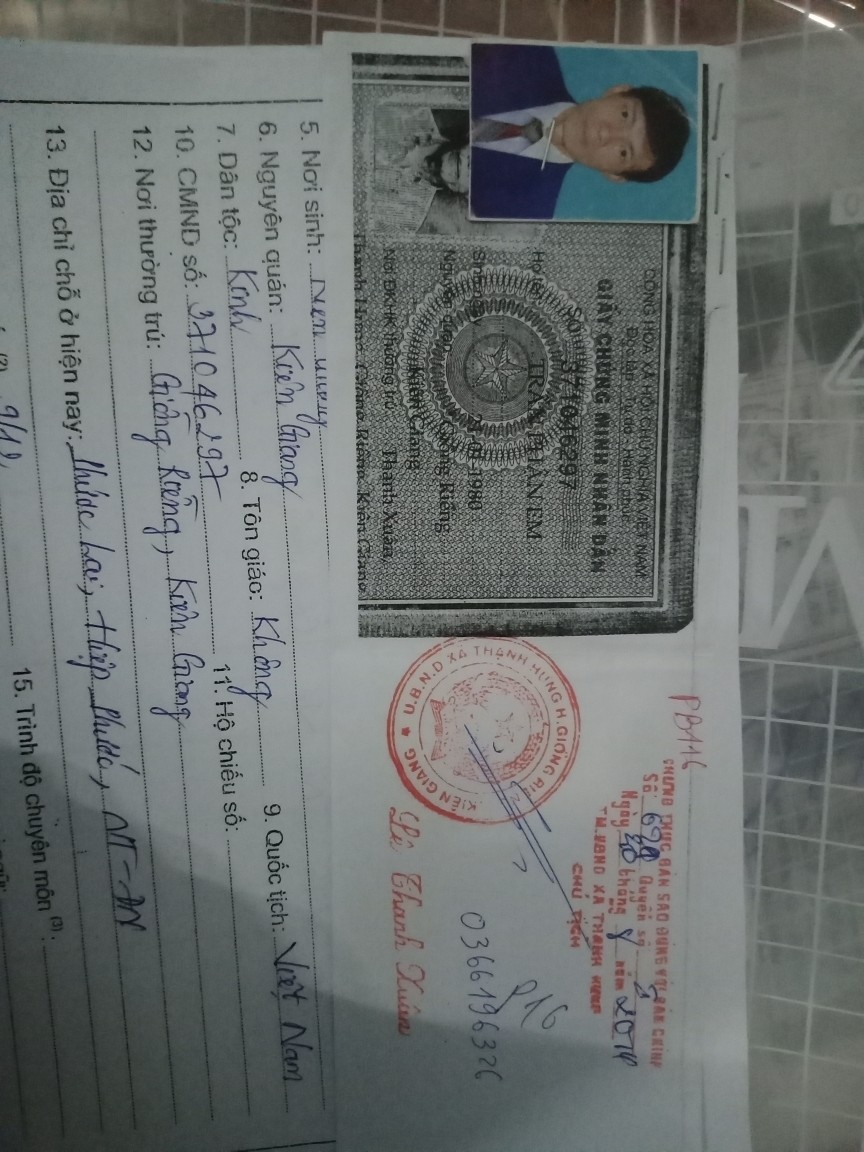 CỘNG HÒA XÃ HỘI CHỦ NGHĨA VIỆT NAM
Độc lập - Tự do - Hạnh phúc
GIẤY CHỨNG MINH NHÂN DÂN
Số 371046297
Họ tên TRẦN PHẦN EM
1980
Nguyên quán Giồng Riềng
Kiên Giang
Nơi ĐKHK thường trú Thạnh Xuân,
Thạnh Hưng, Giồng Riềng, Kiên Giang
PB116
CHỨNG THỰC BẢN SAO ĐÚNG VỚI BẢN CHÍNH
Số: Quyển số
Ngày tháng năm 2014
TM.UBND XÃ THẠNH HƯNG
CHỦ TỊCH
U.B.N.D XÃ THẠNH HƯNG H.GIỒNG RIỀNG
★ KIÊN GIANG
Lê Thanh Xuân
P16
0366196326
5. Nơi sinh:
6. Nguyên quán: Kiên Giang
7. Dân tộc: Kinh 8. Tôn giáo: Không 9. Quốc tịch: Việt Nam
10. CMND số: 371046297 11. Hộ chiếu số:
12. Nơi thường trú: Giồng Riềng, Kiên Giang
13. Địa chỉ chỗ ở hiện nay: Phước Lai, Hiệp Phước, NT-ĐN
9/12 15. Trình độ chuyên môn (3):